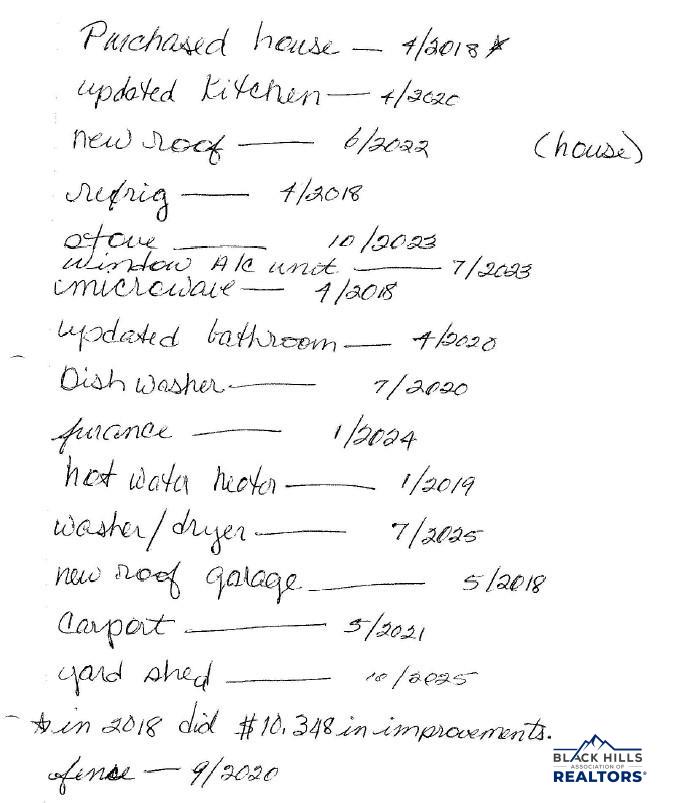 Purchased house — 4/2018 *
updated kitchen — 4/2020
new roof — 6/2022 (house)
refrig — 4/2018
stove — 10/2023
window A/C unit — 7/2023
microwave — 4/2018
updated bathroom — 4/2020
Dishwasher — 7/2020
furance — 1/2024
hot water heater — 1/2019
washer/dryer — 7/2025
new roof garage — 5/2018
Carport — 5/2021
yard shed — 10/2025
* in 2018 did $10,348 in improvements.
fence — 9/2020
BLACK HILLS
ASSOCIATION OF
REALTORS®